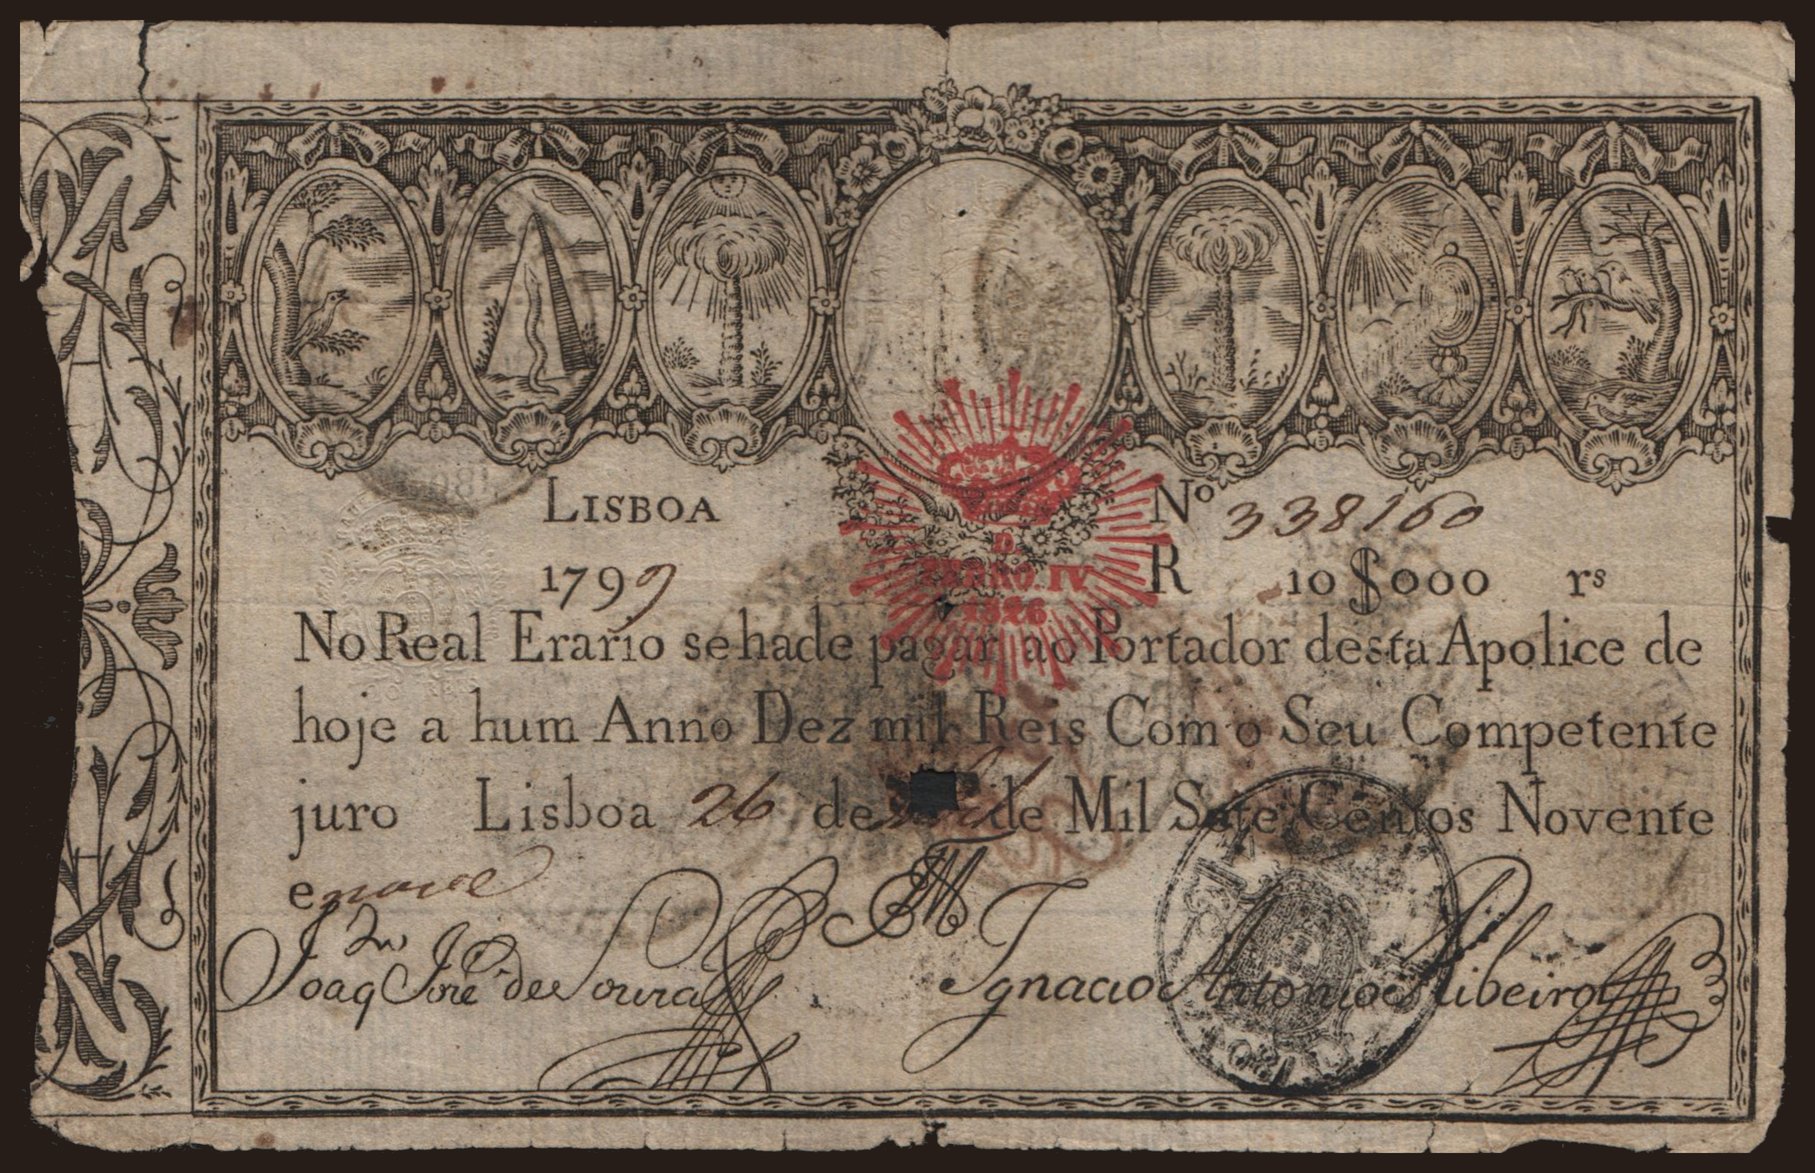 LISBOA
Nº 338160
1799
R 10$000 rs
No Real Erario sehade pagar ao Portador desta Apolice de
hoje a hum Anno Dez mil Reis Com o Seu Competente
juro Lisboa 26 de de Mil Sete Centos Novente
e nove
Joaqm José de Souza
Ignacio Antonio Ribeiro
D.
PEDRO. IV
1826.